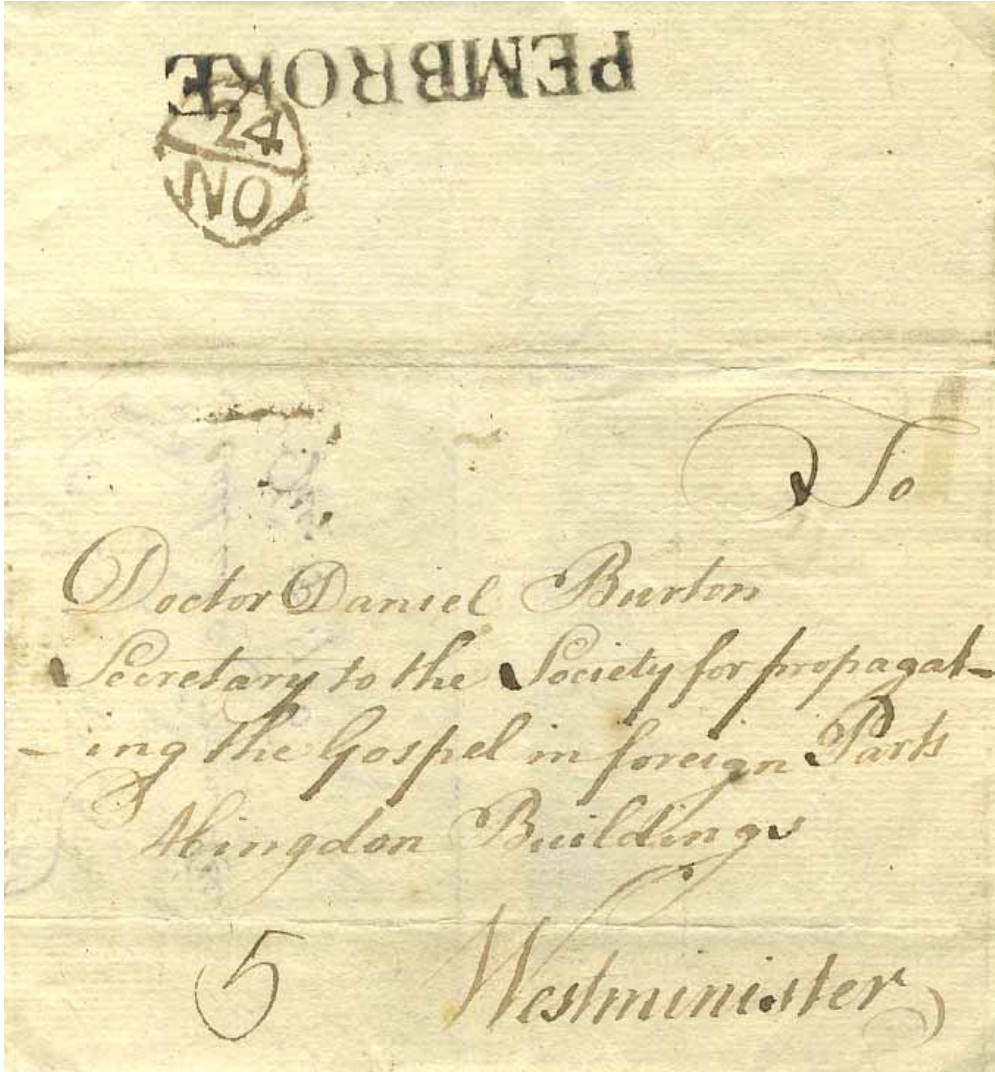 PEMBROKE
24
NO
To
Doctor Daniel Burton
Secretary to the Society for propagat-
-ing the Gospel in foreign Parts
Abingdon Buildings
5 Westminister